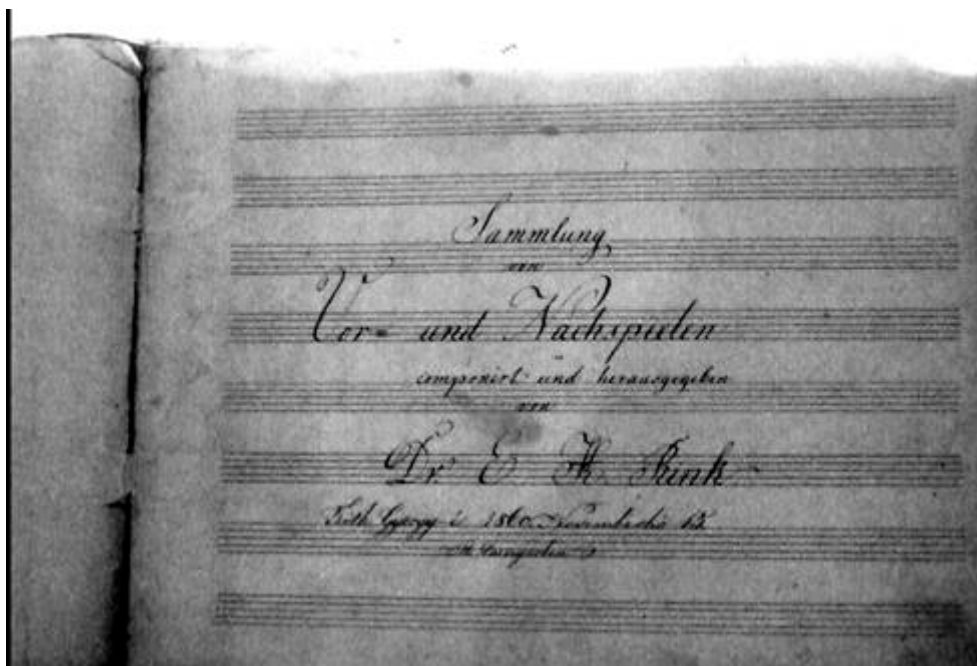 Sammlung
von
Vor= und Nachspielen
componirt und herausgegeben
von
Dr. E H Rink
György 1860 Novemb